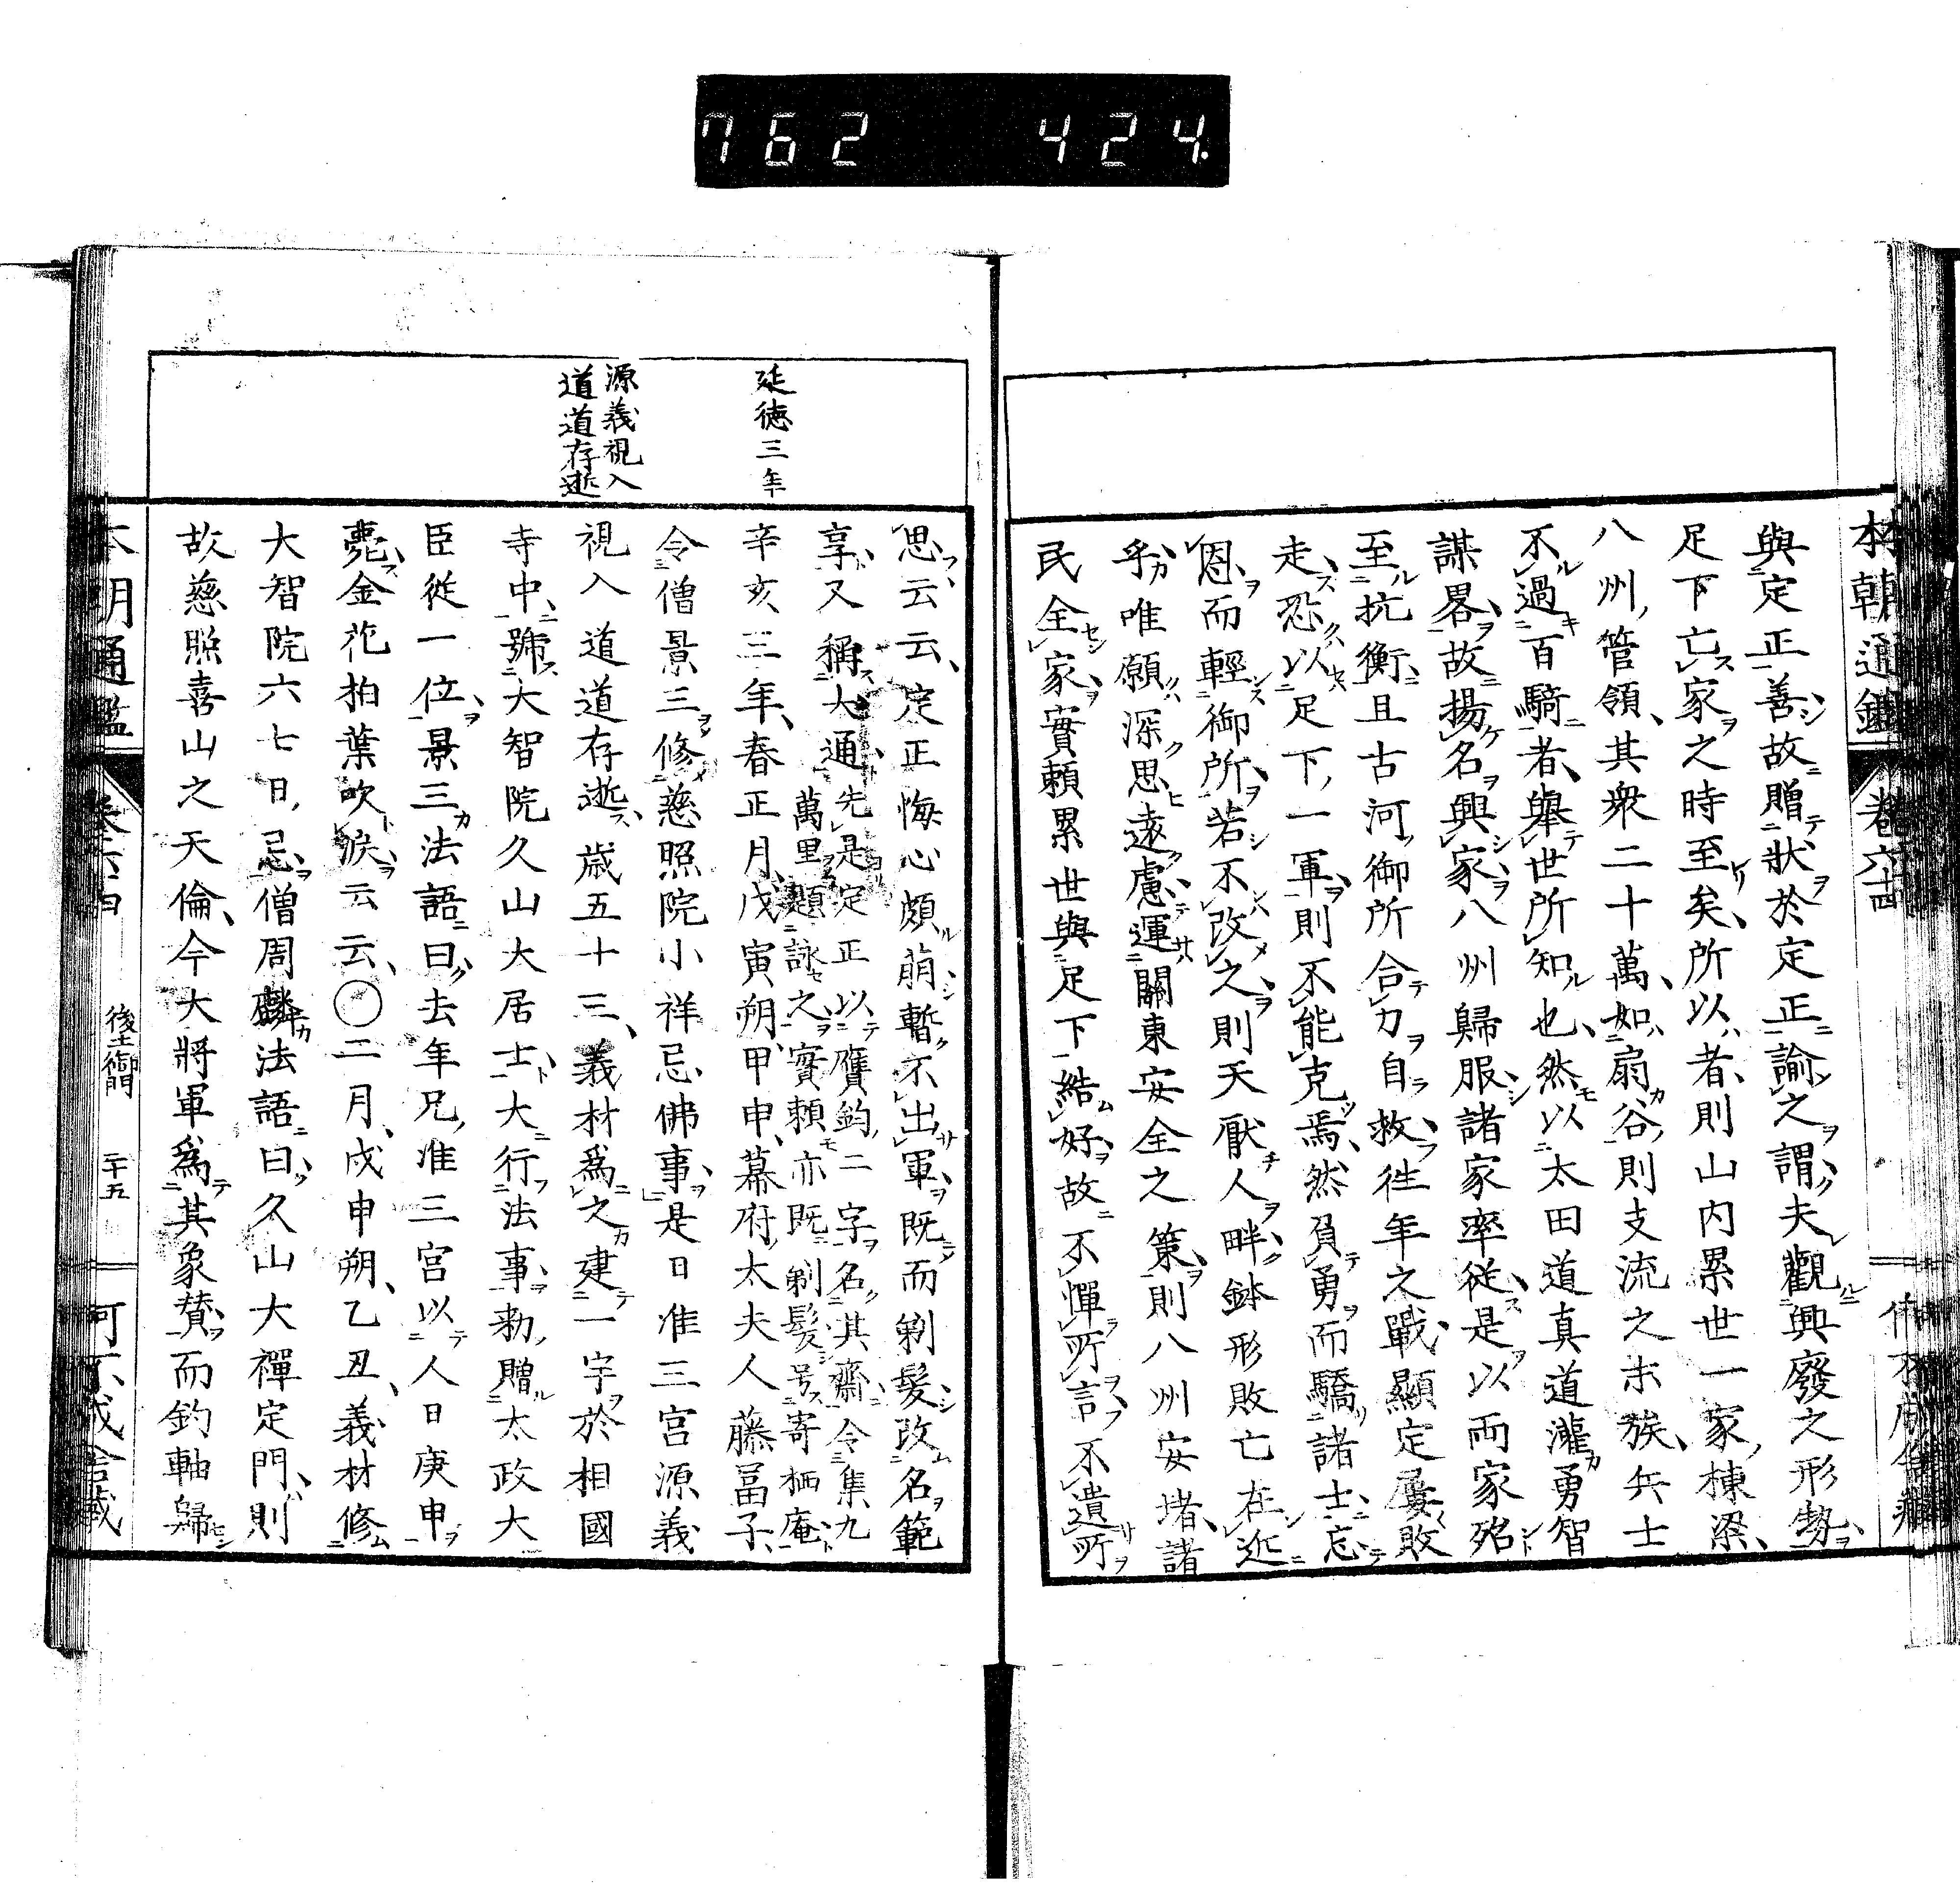 762 424.
本朝通鑑 卷六十四
與定正善故贈狀於定正諭之謂夫觀興廢之形勢
足下亡家之時至矣所以者則山内累世一家棟梁
八州管領其衆二十萬如扇谷則支流之末族兵士
不過百騎者舉世所知也然以太田道真道灌勇智
謀畧故揚名興家八州歸服諸家率從是以兩家殆
至抗衡且古河御所合力自救往年之戰顯定屢敗
走恐以足下一軍則不能克焉然負勇而驕諸士忘
恩而輕御所若不改之則天厭人畔鉢形敗亡在近
乎唯願深思遠慮運關東安全之策則八州安堵諸
民全家實賴累世與足下結好故不憚所言不遺所
延德三年
源義視入
道道存逝
思云云定正悔心頗萠暫不出軍既而剃髮改名範
享又稱大通
先是定正以贋釣二字名其齋令集九
萬里題詠之實賴亦既剃髮号寄栖庵
辛亥三年春正月戊寅朔甲申幕府太夫人藤冨子
令僧景三修慈照院小祥忌佛事是日准三宮源義
視入道道存逝歳五十三義材爲之建一宇於相國
寺中號大智院久山大居士大行法事勅贈太政大
臣從一位景三法語曰去年兄准三宮以人日庚申
薨金花拍葉吹淚云云〇二月戊申朔乙丑義材修
大智院六七日忌僧周麟法語曰久山大禪定門則
故慈照喜山之天倫今大將軍爲其象賛而釣軸歸
本朝通鑑 卷六十四 後土御門 二十五